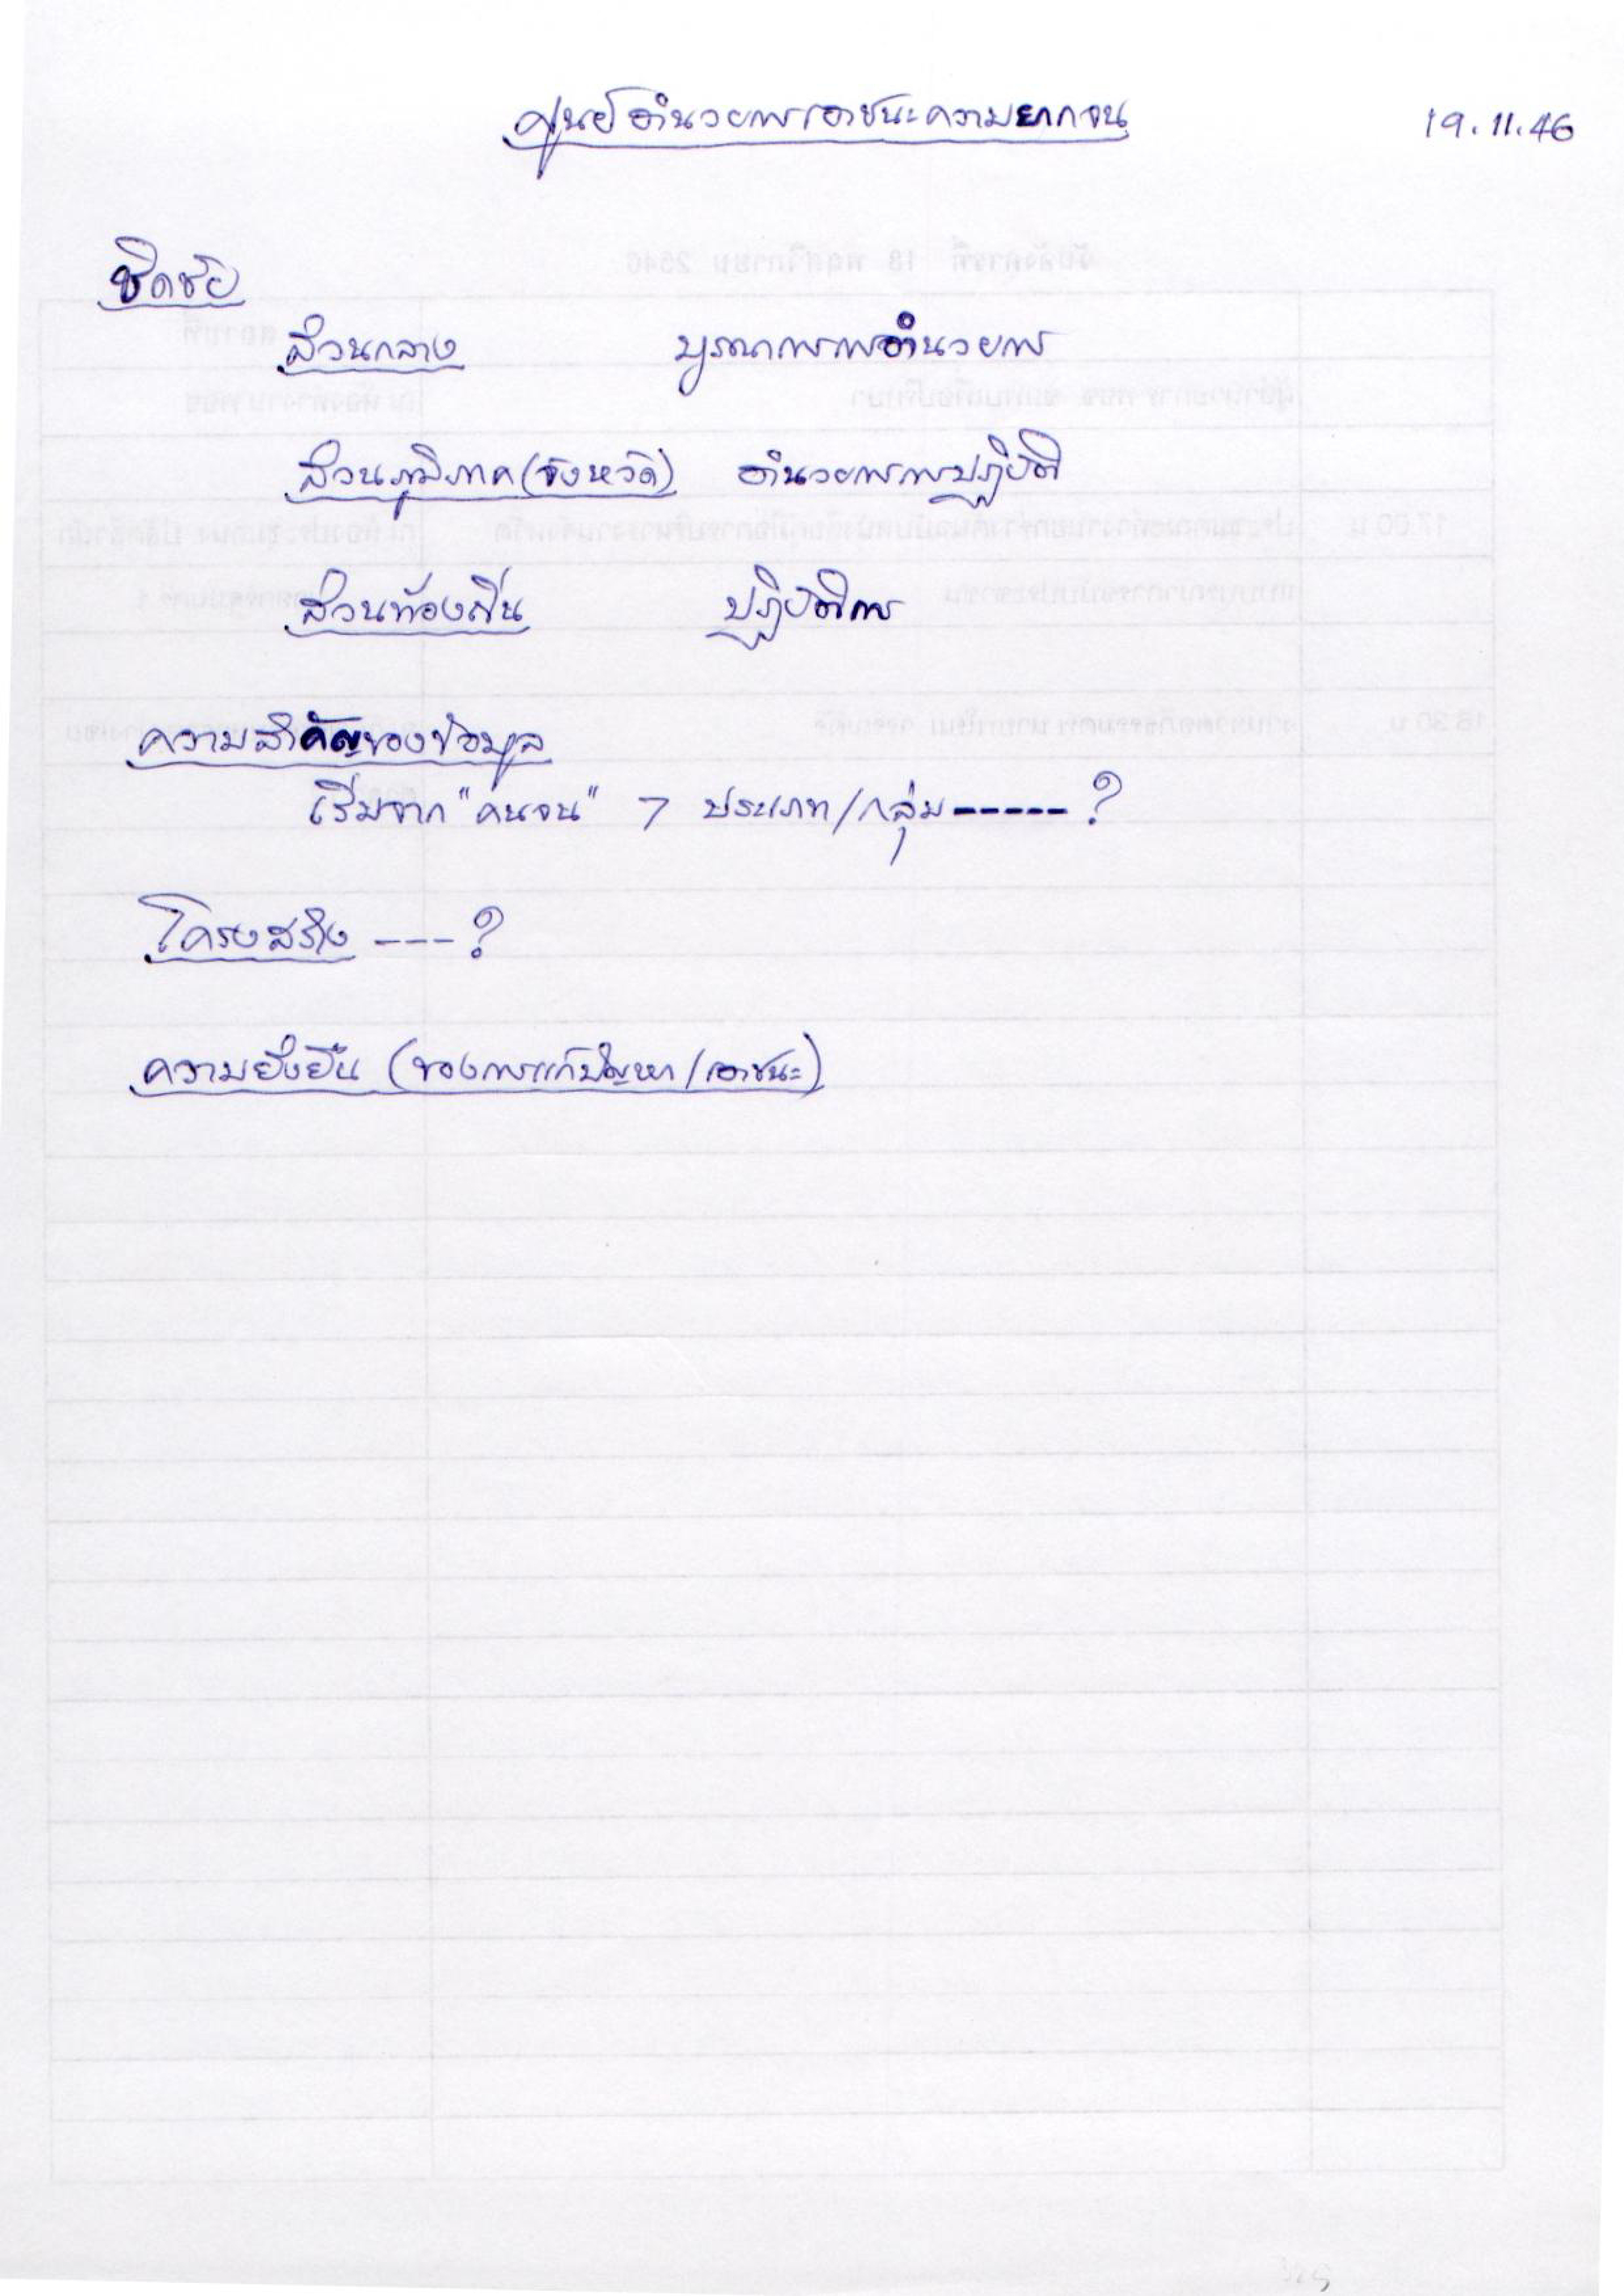 ศูนย์อำนวยการเอาชนะความยากจน 19.11.46
ชิดชัย
ส่วนกลาง บูรณาการการอำนวยการ
ส่วนภูมิภาค (จังหวัด) อำนวยการการปฏิบัติ
ส่วนท้องถิ่น ปฏิบัติการ
ความสำคัญของข้อมูล
เริ่มจาก "คนจน" 7 ประเภท/กลุ่ม ----- ?
โครงสร้าง --- ?
ความยั่งยืน (ของการแก้ปัญหา/เอาชนะ)